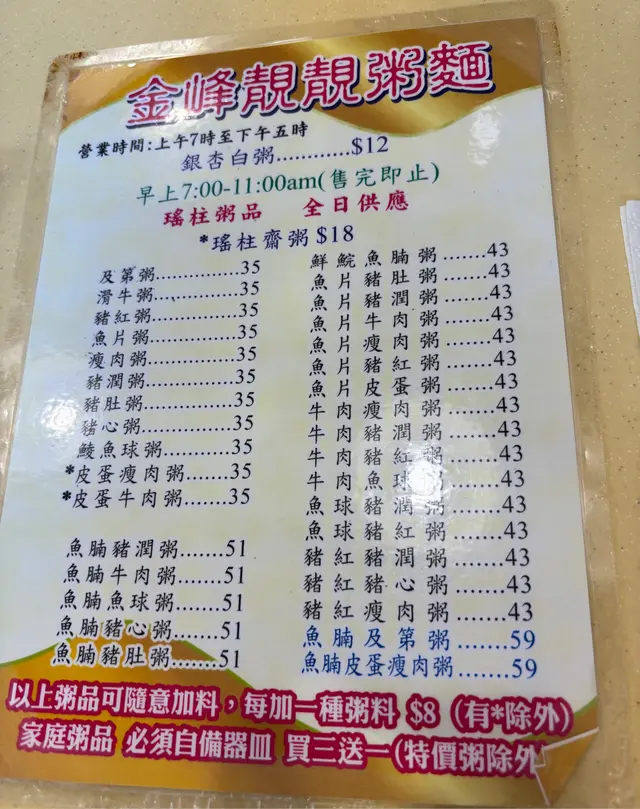 金峰靚靚粥麵
營業時間:上午7時至下午五時
銀杏白粥............$12
早上7:00-11:00am(售完即止)
瑤柱粥品 全日供應
*瑤柱齋粥 $18
及第粥..............35
滑牛粥..............35
豬紅粥..............35
魚片粥..............35
瘦肉粥..............35
豬潤粥..............35
豬肚粥..............35
豬心粥..............35
鯪魚球粥..........35
*皮蛋瘦肉粥......35
*皮蛋牛肉粥......35
魚腩豬潤粥.......51
魚腩牛肉粥.......51
魚腩魚球粥.......51
魚腩豬心粥.......51
魚腩豬肚粥.......51
鮮鯇魚腩粥.......43
魚片豬肚粥.......43
魚片豬潤粥.......43
魚片牛肉粥.......43
魚片瘦肉粥.......43
魚片豬紅粥.......43
魚片皮蛋粥.......43
牛肉瘦肉粥.......43
牛肉豬潤粥.......43
牛肉豬紅粥.......43
牛肉魚球粥.......43
魚球豬潤粥.......43
魚球豬紅粥.......43
豬紅豬潤粥.......43
豬紅豬心粥.......43
豬紅瘦肉粥.......43
魚腩及第粥.......59
魚腩皮蛋瘦肉粥.......59
以上粥品可隨意加料，每加一種粥料 $8 (有*除外)
家庭粥品 必須自備器皿 買三送一(特價粥除外